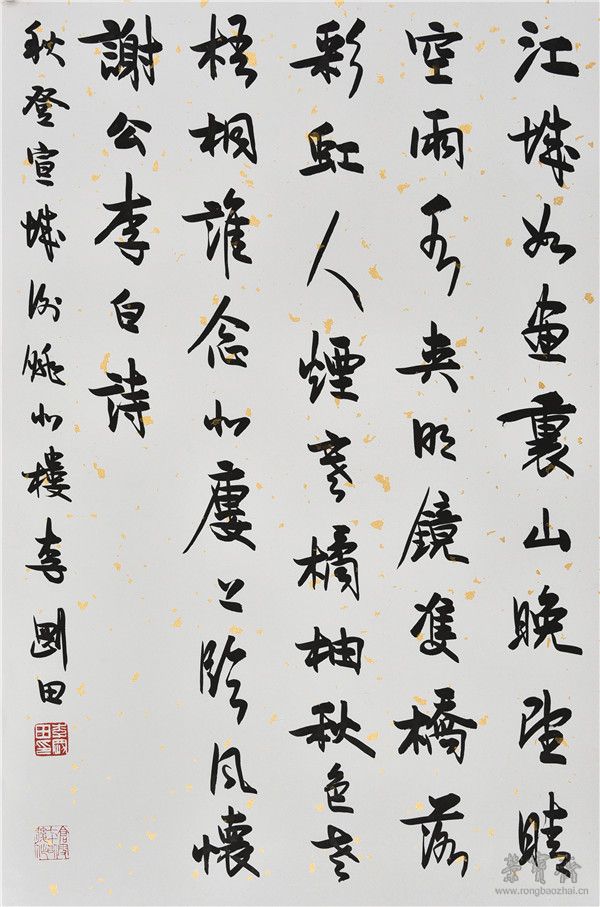 江城如畫裏山晚望晴
空兩水夾明鏡雙橋落
彩虹人煙寒橘柚秋色老
梧桐誰念北廔上臨風懷
謝公李白詩
秋登宣城謝朓北樓李剛田
榮寶齋
www.rongbaozhai.cn